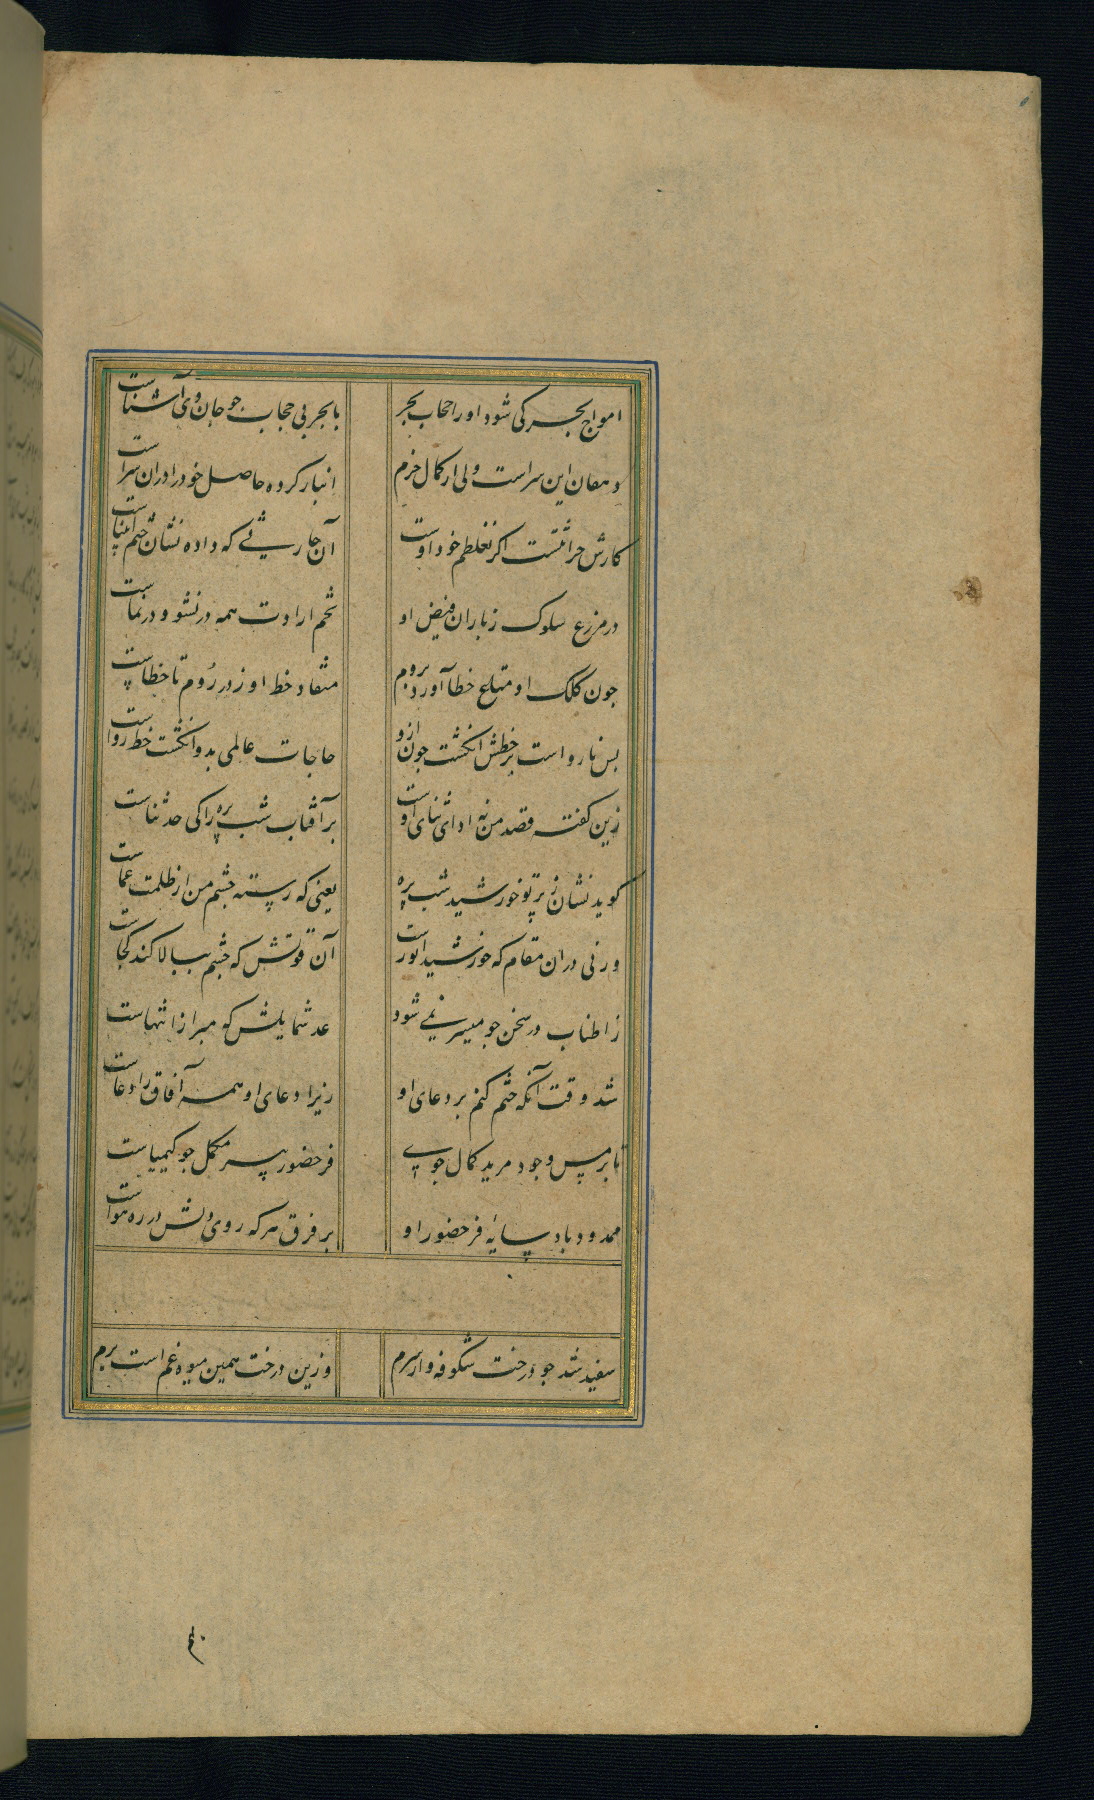 امواج بحر کی شود او را حجاب بحر
با بحر بی حجاب جو جان وی آشناست
دهقان این سراست ولی از کمال حزم
انبار کرده حاصل خود را دران سراست
کارش حراثتست اکر نغلطم خود اوست
آن حارثی که داده نشان ختم انبیاست
در مزرع سلوک ز باران فیض او
تخم ارادت همه در نشو و در نماست
جون کلک او متاع خطا آورد بروم
منقاد خط او ز در روم تا خطاست
بس نارواست بر خطش انکشت جون ازو
حاجات عالمی بدو انکشت خط رواست
زین کفته قصد من نه ادای ثنای اوست
بر آفتاب شب پره را کی حد ثناست
کوید نشان ز پرتو خورشید شب پره
یعنی که رسته جشم من از ظلمت عماست
ورنی دران مقام که خورشید انورست
آن قوتش که جشم ببالا کند کجاست
ز اطناب در سخن جو میسر نمی شود
عد شمایلش که مبرا ز انتهاست
شد وقت آنکه ختم کنم بر دعای او
زیرا دعای او همه آفاق را دعاست
تا بر مس وجود مرید کمال جوی
فر حضور پیر مکمل جو کیمیاست
ممدود باد سایهٔ فر حضور او
بر فرق هر که روی دلش در ره هواست
سفید شد جو درخت شکوفه وار سرم
وزین درخت همین میوه غم است برم